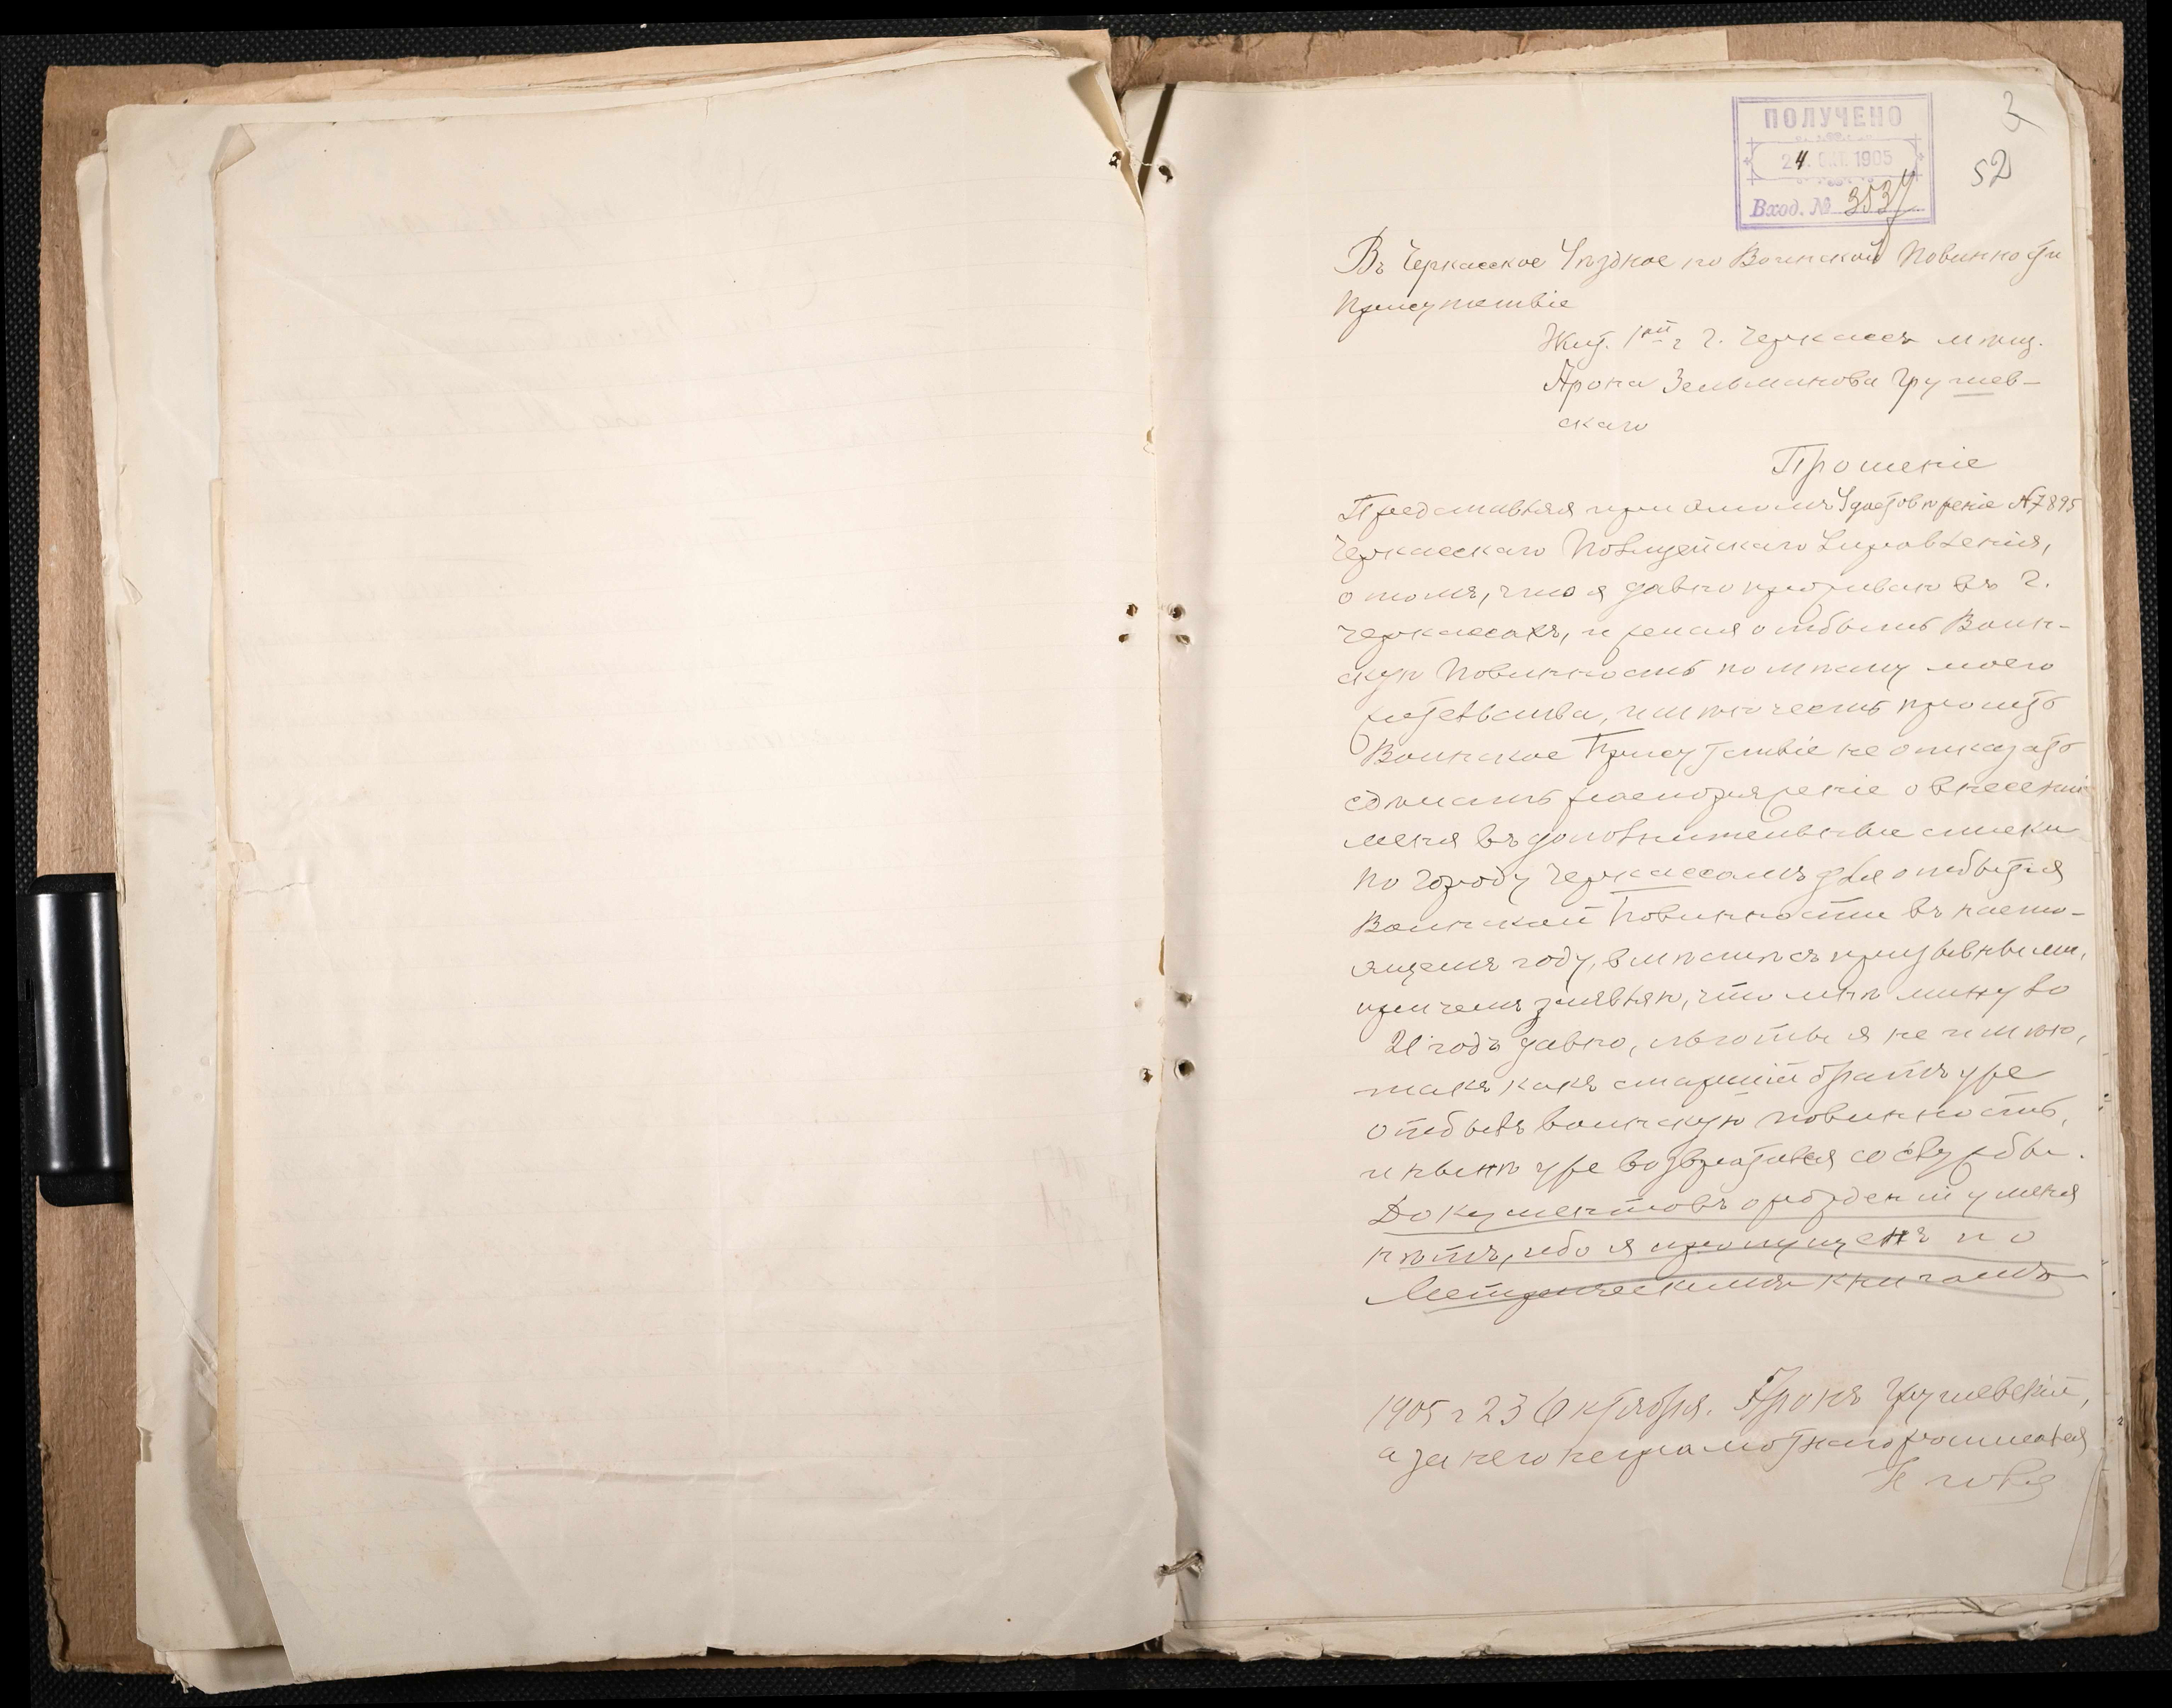 ПОЛУЧЕНО
24. ОКТ. 1905
Вход. №
52
Въ Черкасское Уѣздное по Воинской Повинности
Присутствіе
Жит. г. Черкассъ мѣщ.
Арона Зельманова Грушев-
скаго
Прошеніе
Представляя при этомъ Удостовѣреніе №7895
Черкасскаго Полицейскаго Управленія,
о томъ, что я давно проживаю въ г.
Черкассахъ, и желая отбыть Воин-
скую Повинность по мѣсту моего
жительства, имѣю честь просить
Воинское Присутствіе не отказать
сдѣлать распоряженіе о внесеніи
меня въ дополнительные списки
по городу Черкассамъ для отбытія
Воинской Повинности въ насто-
ящемъ году, вмѣстѣ съ призывными,
причемъ заявляю, что мнѣ минуло
21 годъ давно, льготы я не имѣю,
такъ какъ старшій братъ уже
отбылъ воинскую повинность,
и нынѣ уже возвратился со службы.
Документовъ о рожденіи у меня
нѣтъ, ибо я пропущенъ по
Метрическимъ книгамъ
1905 г 23 Октября. Аронъ Грушевскій,
а за него неграмотнаго росписался